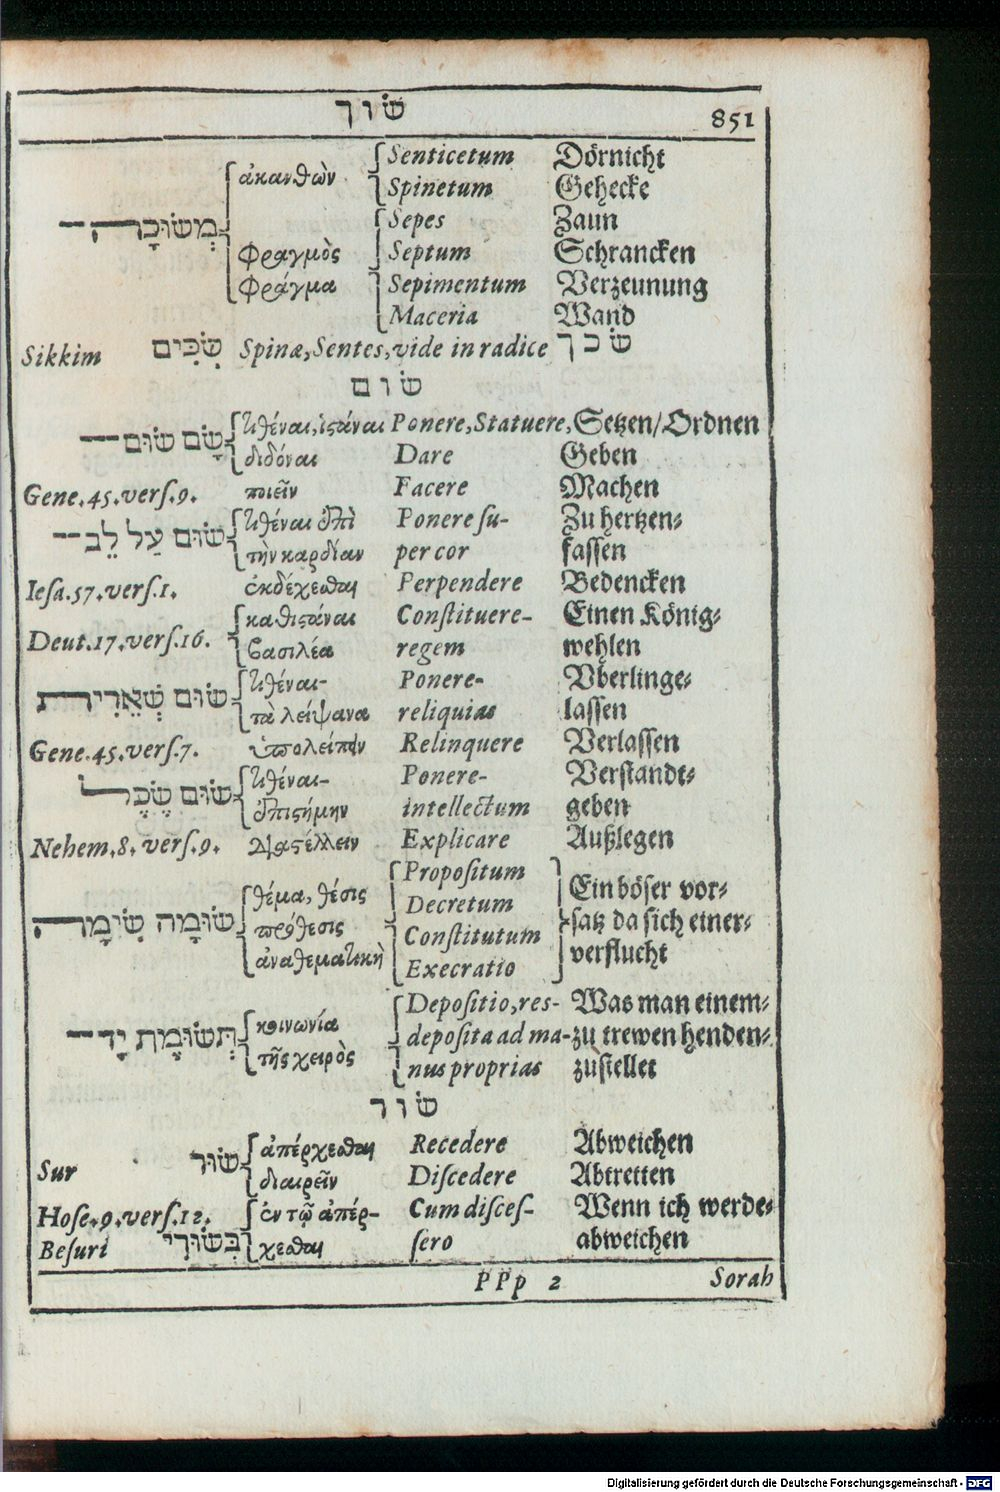 שׂוך 851
ἀκανθὼν Senticetum Dörnicht
Spinetum Gehecke
מְשׂוּכָּה— Sepes Zaun
Φραγμὸς Septum Schrancken
Φράγμα Sepimentum Verzeunung
Maceria Wand
Sikkim שִׂכִּים Spinæ, Sentes, vide in radice שׂכך
שׂום
שָׂם שׂוּם— τιθέναι, ἱστάναι Ponere, Statuere, Setzen/Ordnen
διδόναι Dare Geben
Gene. 45. vers. 9. ποιεῖν Facere Machen
שׂוּם עַל לֵב— τιθέναι ἐπὶ Ponere su- Zu hertzen-
τὴν καρδίαν per cor fassen
Iesa. 57. vers. 1. ἐκδέχεσθαι Perpendere Bedencken
Deut. 17. vers. 16. καθιστάναι Constituere- Einen König-
βασιλέα regem wehlen
שׂוּם שְׁאֵרִית τιθέναι- Ponere- Vberlinge-
τὰ λείψανα reliquias lassen
Gene. 45. vers. 7. ὑπολείπειν Relinquere Verlassen
שׂוּם שֶׂכֶל τιθέναι- Ponere- Verstandt-
ἐπιστήμην intellectum geben
Nehem. 8. vers. 9. διαστέλλειν Explicare Außlegen
שׂוּמָה שִׂימָה θέμα, θέσις Propositum Ein böser vor-
πρόθεσις Decretum satz da sich einer-
ἀναθεματικὴ Constitutum verflucht
Execratio
תְּשׂוּמֶת יָד— κοινωνία Depositio, res- Was man einem-
τῆς χειρὸς deposita ad ma- zu trewen henden-
nus proprias zůstellet
שׂור
Sur שׂוּר ἀπέρχεσθαι Recedere Abweichen
διαιρεῖν Discedere Abtretten
Hose. 9. vers. 12. ἐν τῷ ἀπέρ- Cum disces- Wenn ich werde-
Besuri בְּשׂוּרִי χεσθαι sero abweichen
PPp 2 Sorah
Digitalisierung gefördert durch die Deutsche Forschungsgemeinschaft - DFG